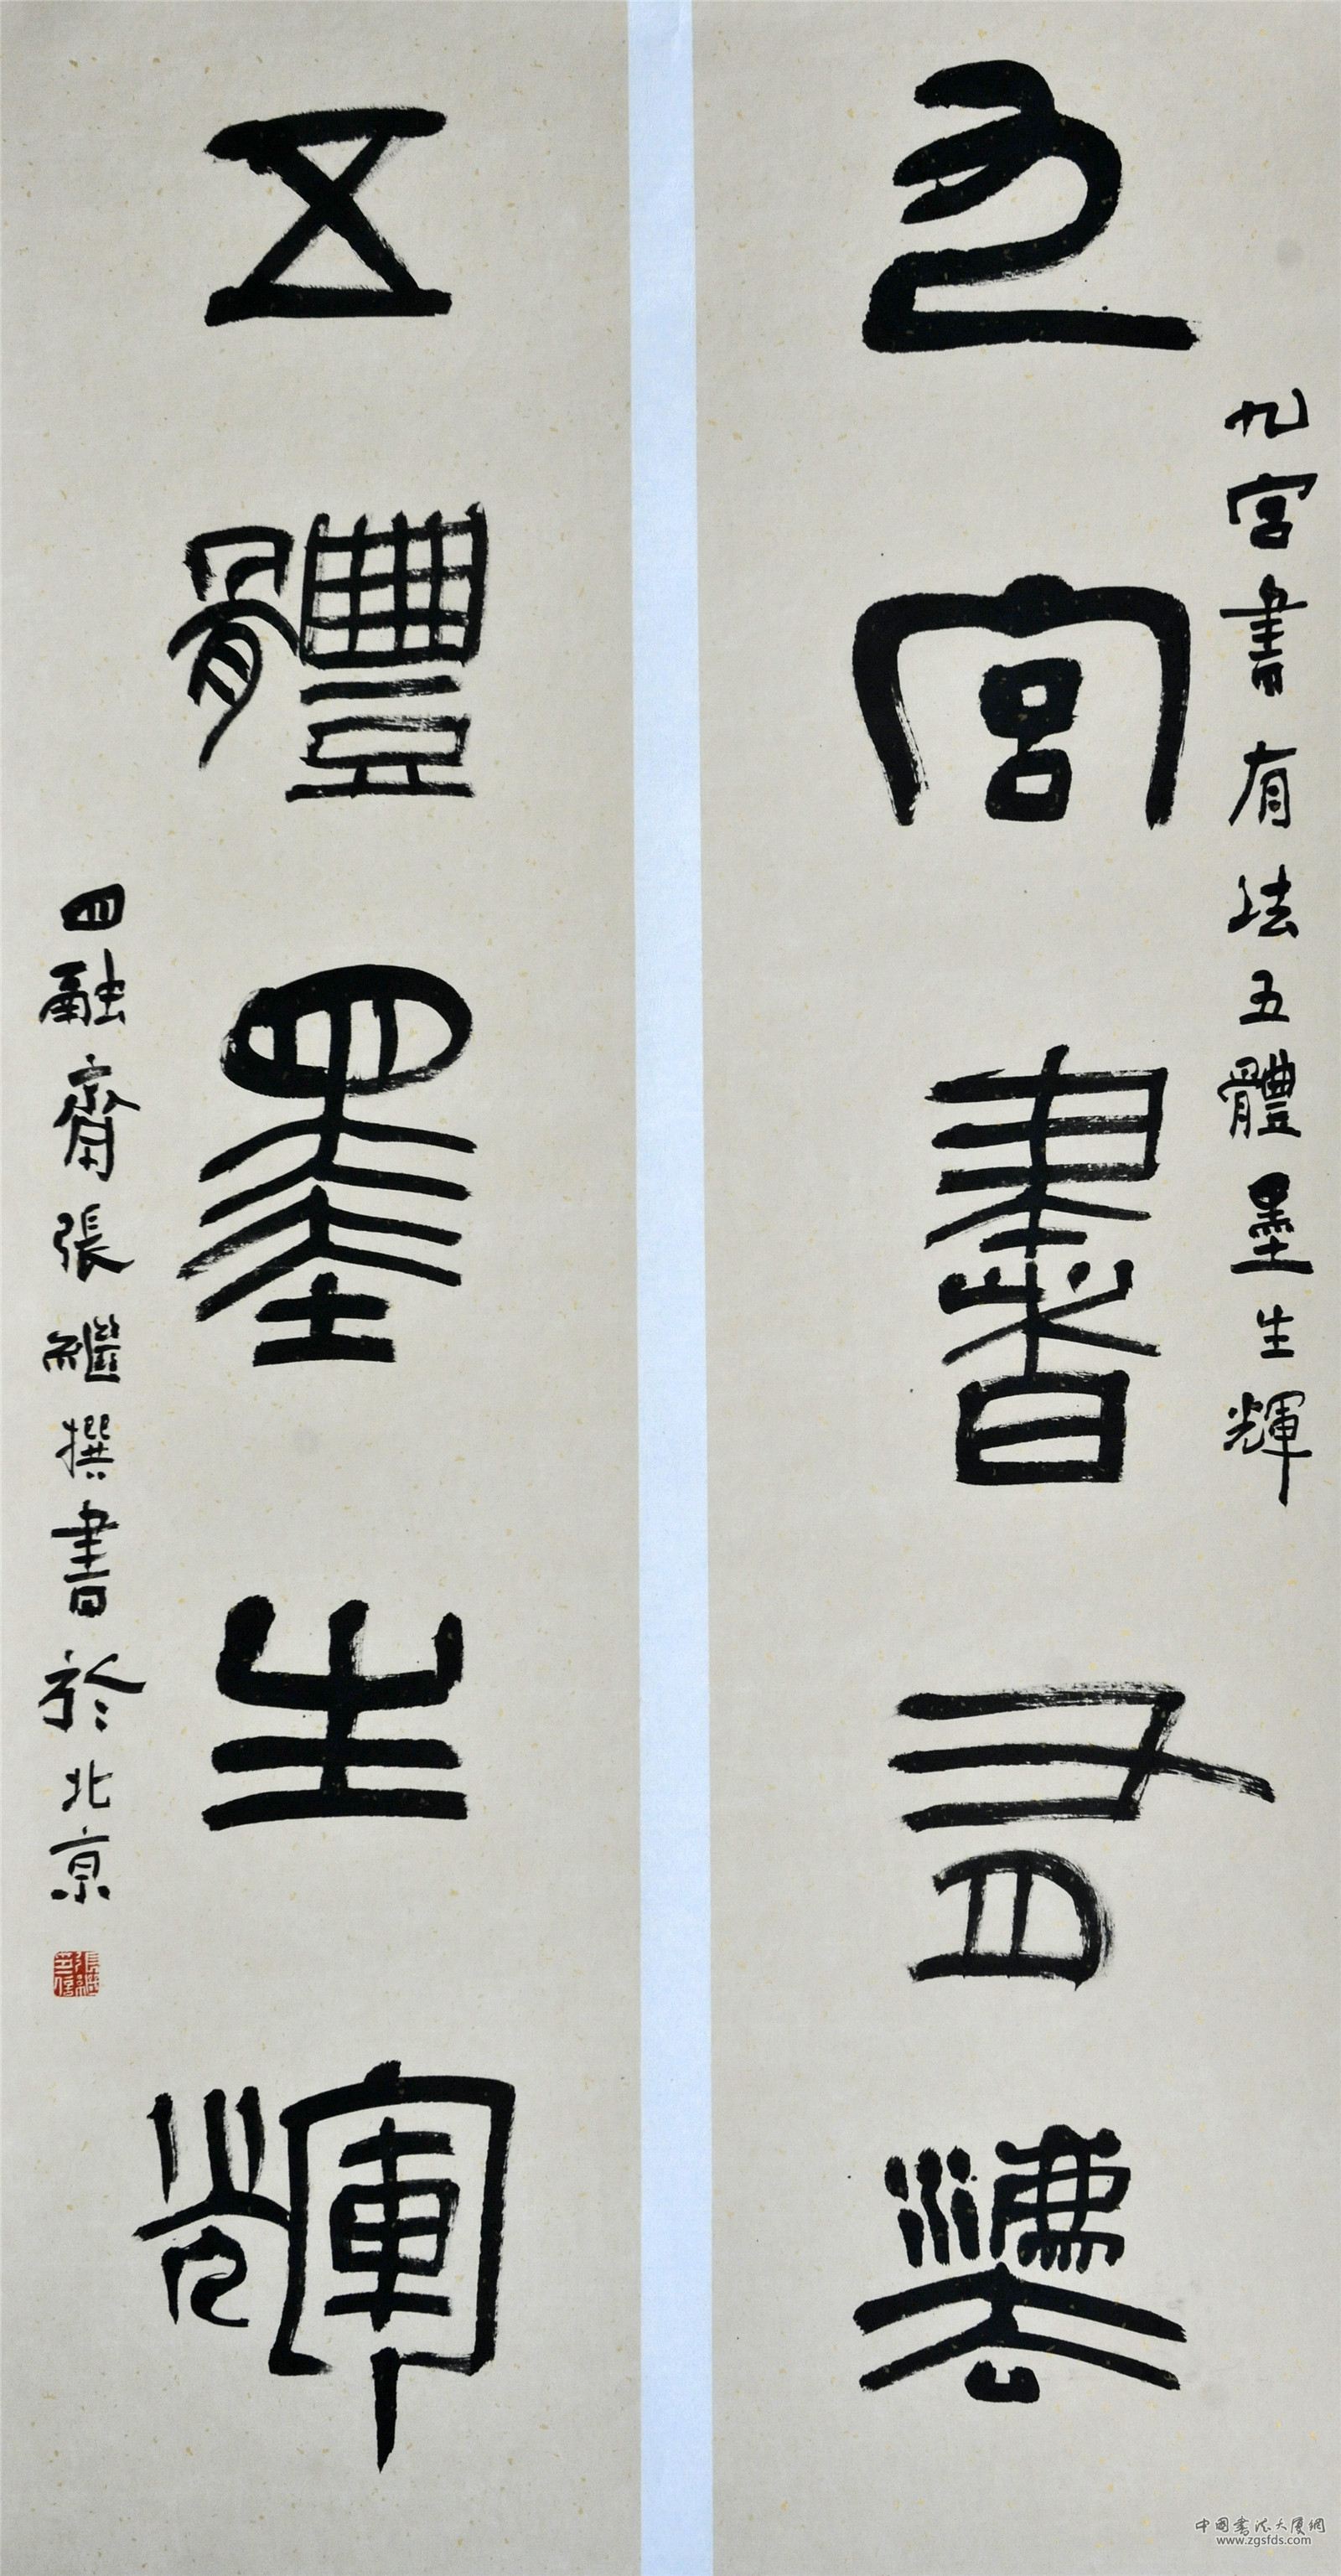 九宮書有灋
九宮書有法五體墨生輝
五體墨生輝
四融齋張繼撰書於北京
張繼印信
中国书法大厦網
www.zgsfds.com